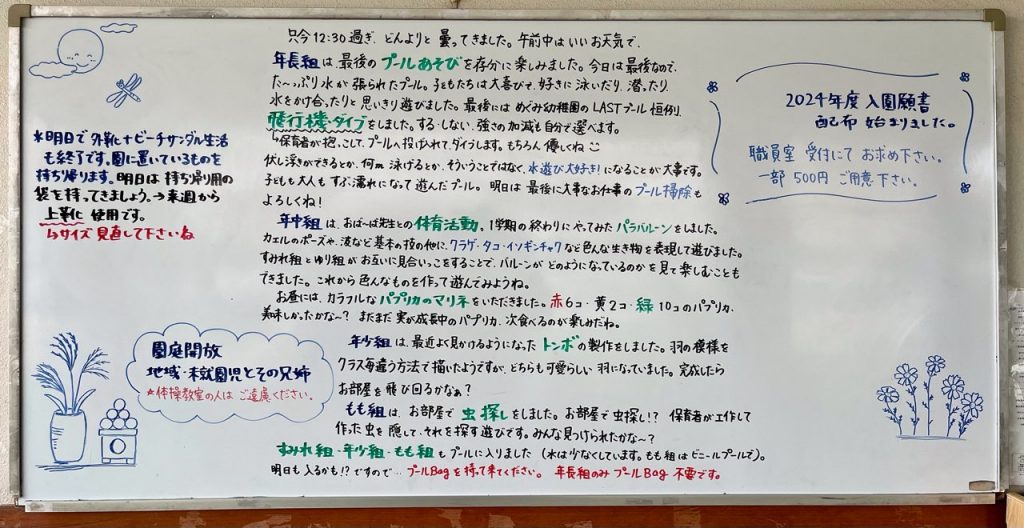 只今12:30過ぎ、どんよりと曇ってきました。午前中はいいお天気で、
年長組は、最後のプールあそびを存分に楽しみました。今日は最後なので、
た〜っぷり水が張られたプール。子どもたちは大喜びで、好きに泳いだり、潜ったり、
水をかけ合ったりと思いきり遊びました。最後には めぐみ幼稚園のLASTプール恒例!
飛行機ダイブをしました。する・しない、強さの加減も自分で選べます。
↳保育者が抱っこして、プールへ投げいれて、ダイブします。もちろん優しくね
伏し浮きができるとか、何m泳げるとか、そういうことではなく、水遊び大好き!になることが大事です。
子どもも大人もずぶ濡れになって遊んだプール。明日は最後に大事なお仕事のプール掃除も
よろしくね!
年中組は、おば〜ば先生との体育活動。1学期の終わりにやってみたパラバルーンをしました。
カエルのポーズや、波など基本の技の他に、クラゲ・タコ・イソギンチャクなど色んな生き物を表現して遊びました。
すみれ組とゆり組がお互いに見合いっこをすることで、バルーンがどのようになっているのかを見て楽しむことも
できました。これから色んなものを作って遊んでみようね。
お昼には、カラフルなパプリカのマリネをいただきました。赤6コ・黄2コ・緑10コのパプリカ、
美味しかったかな〜? まだまだ実が成長中のパプリカ、次食べるのが楽しみだね。
年少組は、最近よく見かけるようになったトンボの製作をしました。羽の模様を
クラス毎違う方法で描いたようですが、どちらも可愛らしい羽になっていました。完成したら
お部屋を飛び回るかなぁ?
もも組は、お部屋で虫探しをしました。お部屋で虫探し!? 保育者が工作して
作った虫を隠して、それを探す遊びです。みんな見つけられたかな〜?
すみれ組・年少組・もも組もプールに入りました(水は少なくしています。もも組はビニールプールで)。
明日も入るかも!?ですので…プールBagを持って来てください。年長組のみプールBag不要です。
*明日で外靴→ビーチサンダル生活
も終了です。園に置いているものを
持ち帰ります。明日は持ち帰り用の
袋を持ってきましょう。→来週から
上靴使用です。
↳サイズ見直して下さいね
園庭開放
地域・未就園児とその兄姉
☆体操教室の人はご遠慮ください。
2024年度入園願書
配布始まりました。
職員室受付にてお求め下さい。
一部500円ご用意下さい。